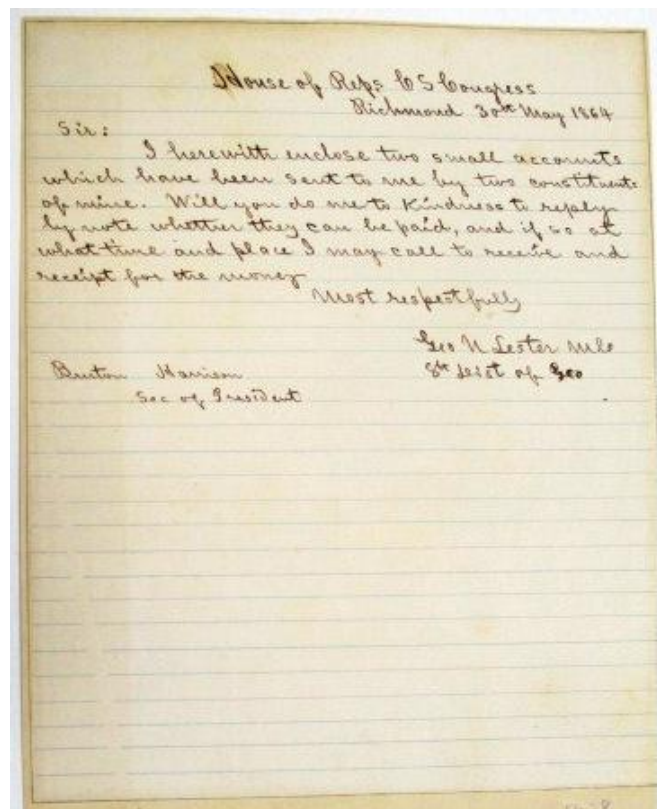 House of Reps C S Congress
Richmond 30th May 1864
Sir:
I herewith enclose two small accounts
which have been sent to me by two constituents
of mine. Will you do me to Kindness to reply
by note whether they can be paid, and if so at
what time and place I may call to receive and
receipt for the money
Most respectfully
Geo N Lester MC
8th Dist of Geo
Burton Harrison
Sec of President